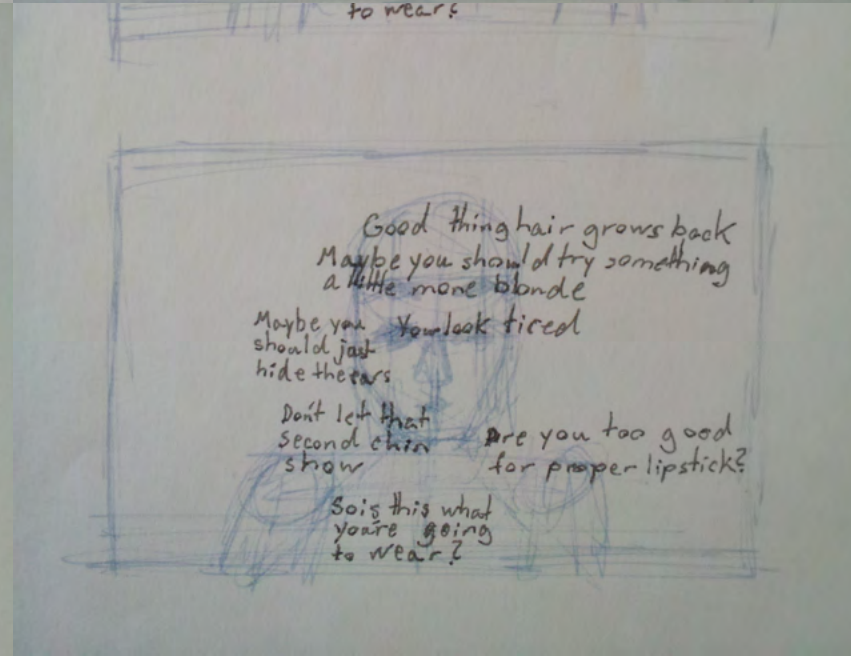 to wear?
Good thing hair grows back
Maybe you should try something
a little more blonde
Maybe you
should just
hide the ears
You look tired
Don't let that
second chin
show
Are you too good
for proper lipstick?
So is this what
you're going
to wear?